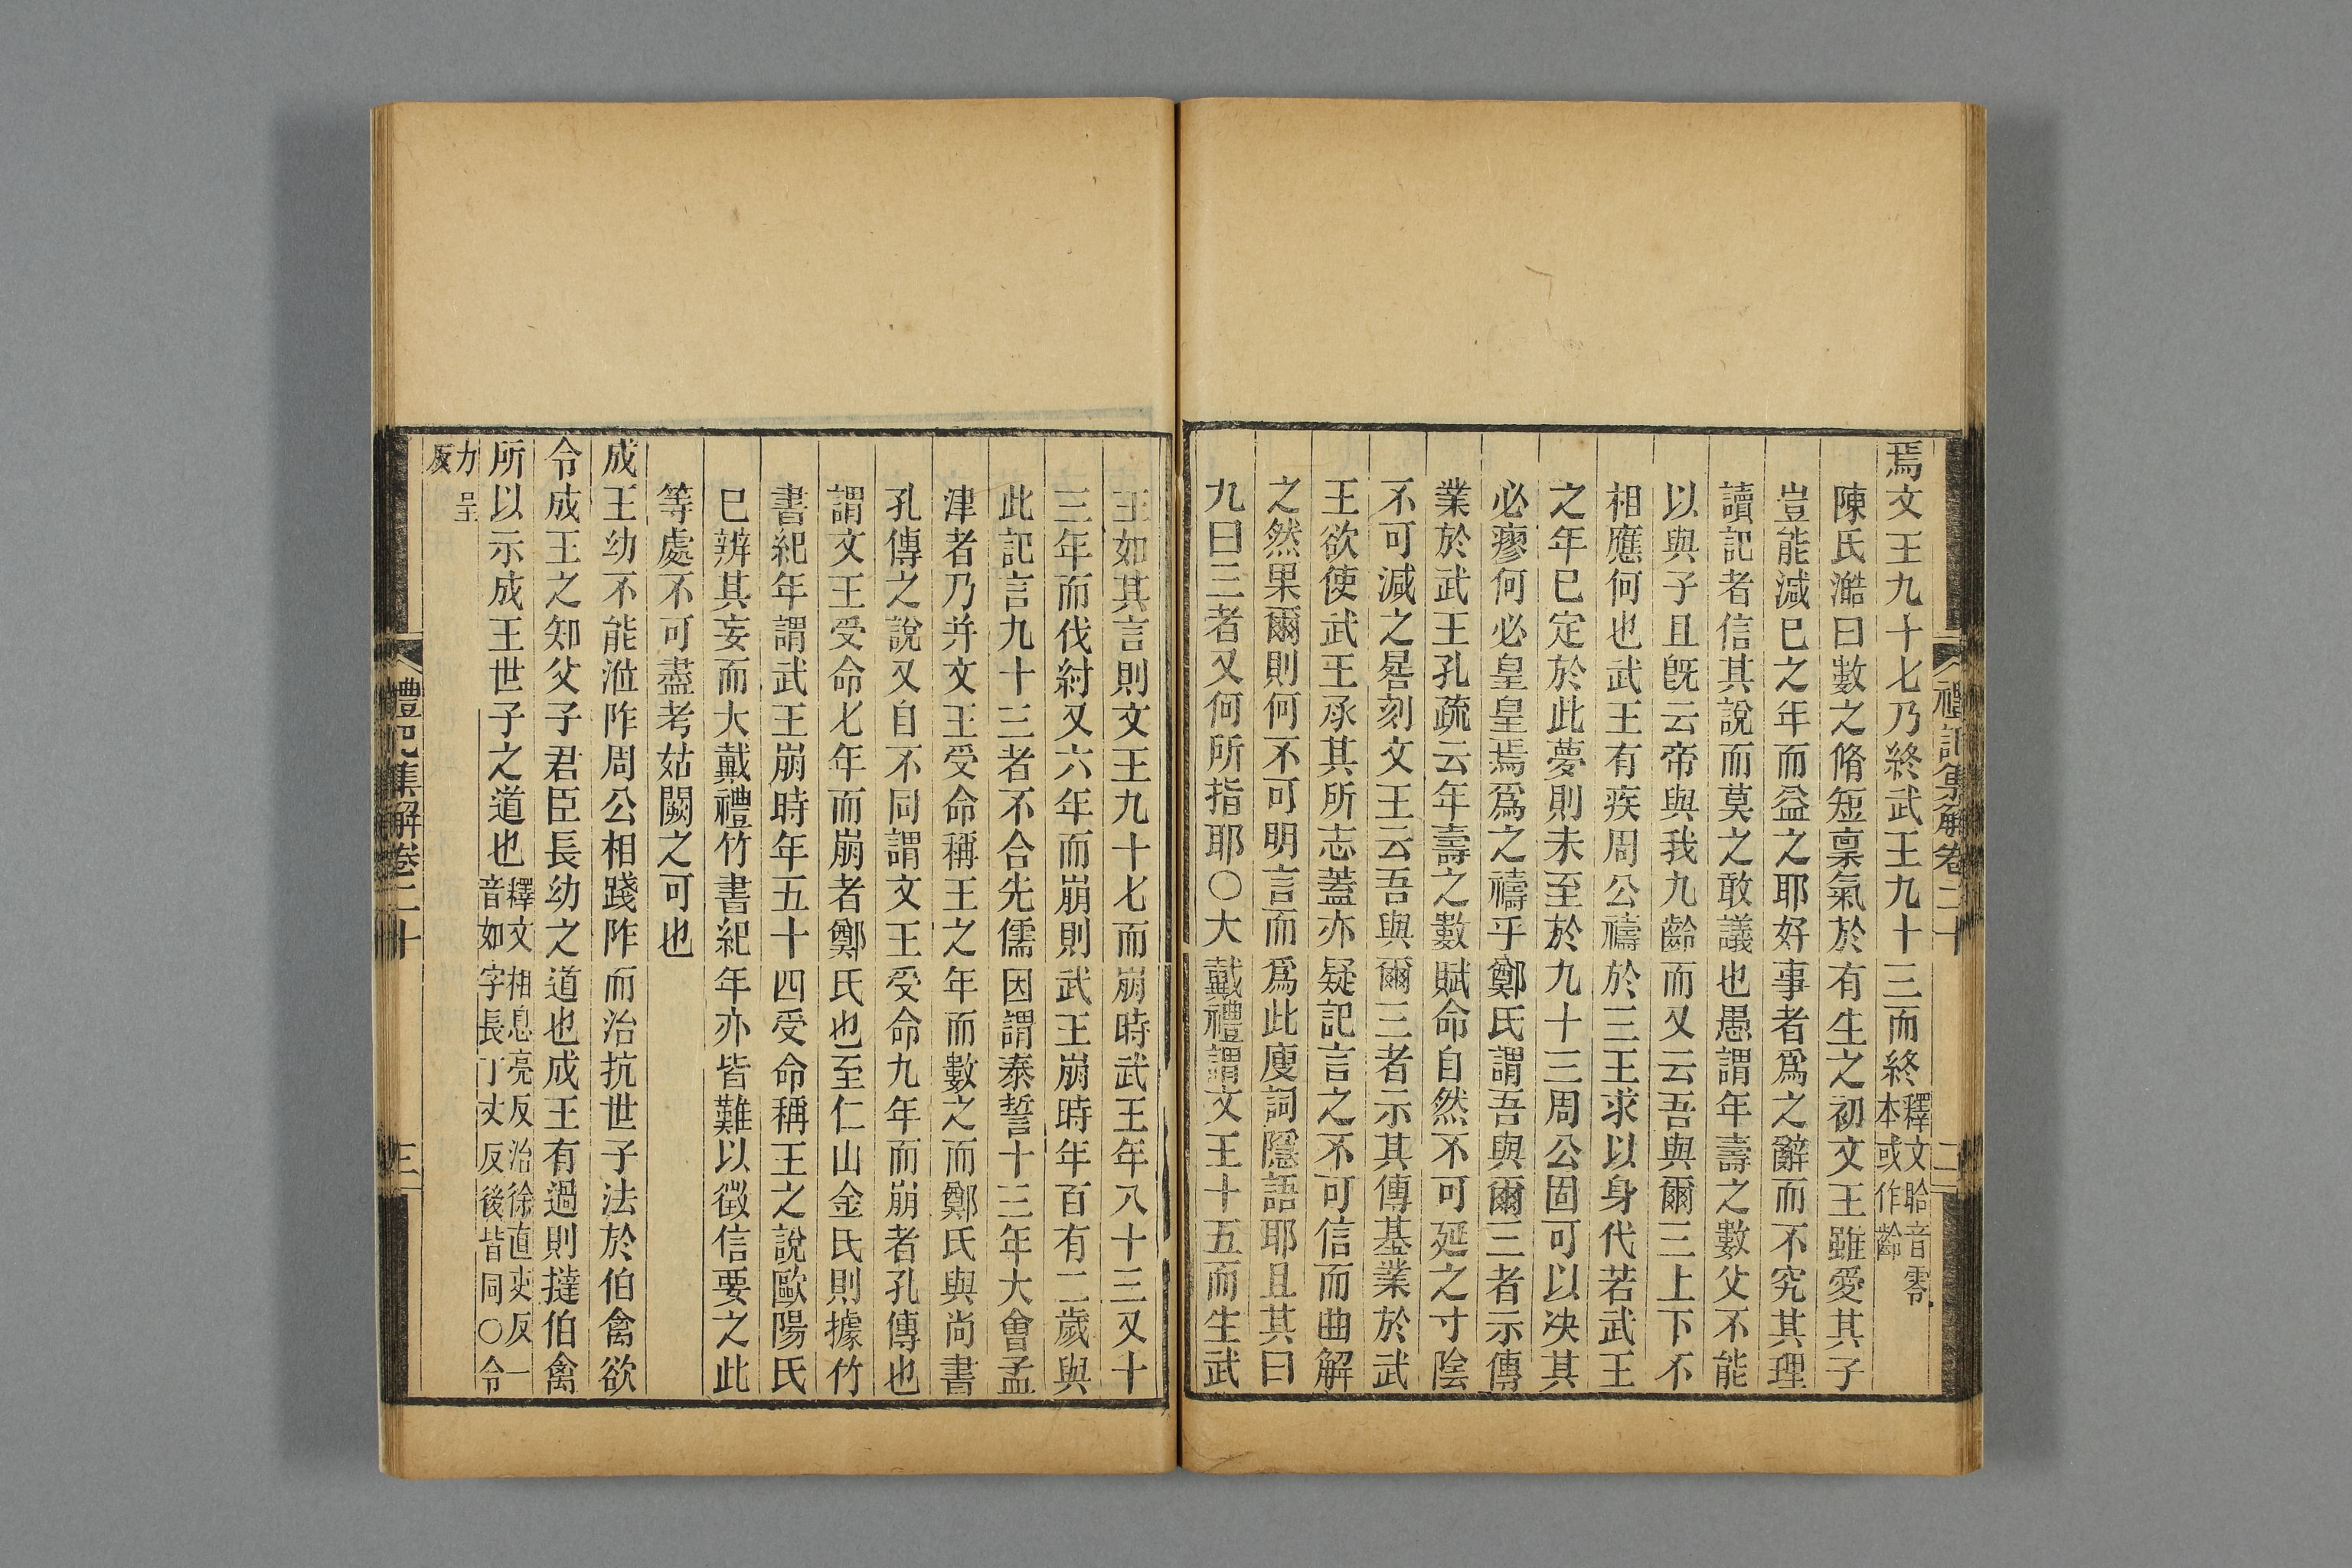 禮記集解卷二十
二
焉文王九十七乃終武王九十三而終釋文聆音零本或作齡
陳氏澔曰數之脩短稟氣於有生之初文王雖愛其子
豈能減已之年而益之耶好事者爲之辭而不究其理
讀記者信其說而莫之敢議也愚謂年壽之數父不能
以與子且旣云帝與我九齡而又云吾與爾三上下不
相應何也武王有疾周公禱於三王求以身代若武王
之年已定於此夢則未至於九十三周公固可以决其
必瘳何必皇皇焉爲之禱乎鄭氏謂吾與爾三者示傳
業於武王孔疏云年壽之數賦命自然不可延之寸陰
不可減之晷刻文王云吾與爾三者示其傳基業於武
王欲使武王承其所志蓋亦疑記言之不可信而曲解
之然果爾則何不可明言而爲此廋詞隱語耶且其曰
九曰三者又何所指耶○大戴禮謂文王十五而生武
王如其言則文王九十七而崩時武王年八十三又十
三年而伐紂又六年而崩則武王崩時年百有二歲與
此記言九十三者不合先儒因謂泰誓十三年大會孟
津者乃并文王受命稱王之年而數之而鄭氏與尚書
孔傳之說又自不同謂文王受命九年而崩者孔傳也
謂文王受命七年而崩者鄭氏也至仁山金氏則據竹
書紀年謂武王崩時年五十四受命稱王之說歐陽氏
已辨其妄而大戴禮竹書紀年亦皆難以徵信要之此
等處不可盡考姑闕之可也
成王幼不能涖阼周公相踐阼而治抗世子法於伯禽欲
令成王之知父子君臣長幼之道也成王有過則撻伯禽
所以示成王世子之道也釋文相息亮反治徐直吏反一音如字長丁丈反後皆同○令
力呈反
禮記集解卷二十
三